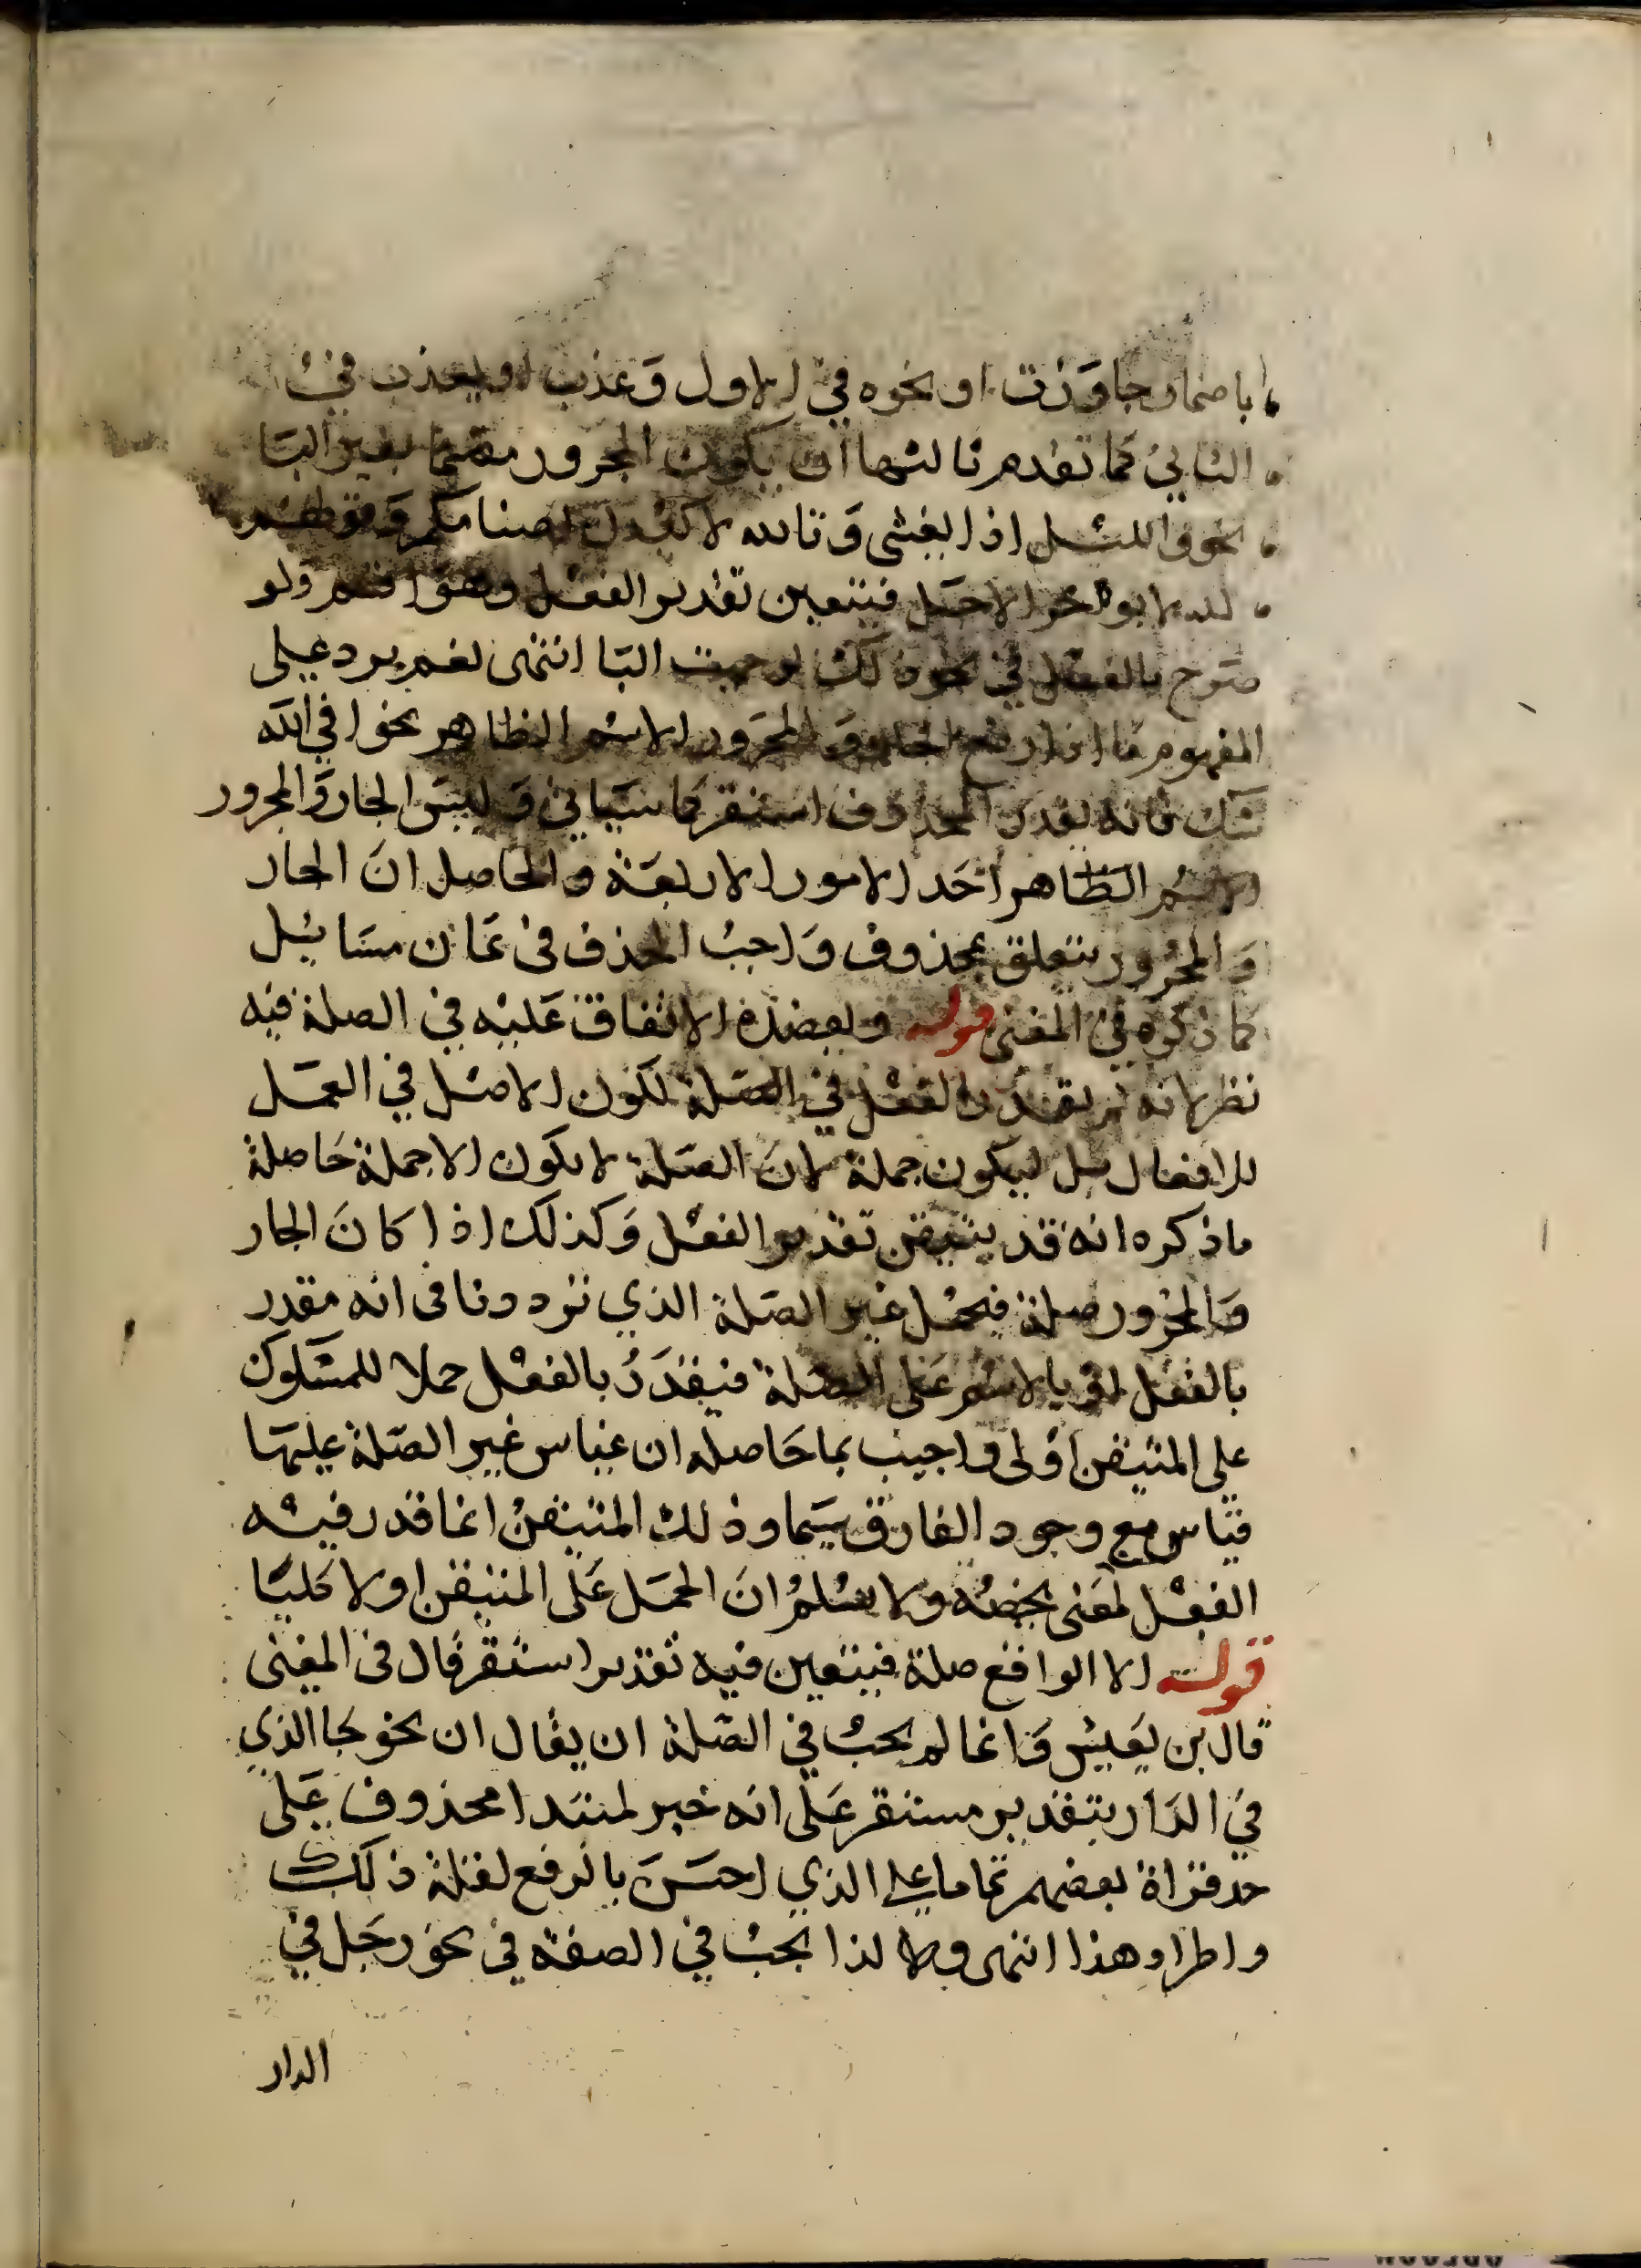 باضمار جاوزت او نحوه في الاول وعذب او يعذب في
الثاني كما تقدم ثالثها ان يكون المجرور مقسما بغير البا
نحو والليل اذا يغشى وتالله لاكيدن اصنامكم وقولهم
لله لا يوخر الاجل فيتعين تقدير الفعل وهو اقسم ولو
صرح بالفعل في نحو ذلك لوجبت البا انتهى نعم يرد على
المفهوم ما اذا رفع الجار والمجرور الاسم الظاهر نحو افي الله
شك فانه يقدر المحذوف استقر كما سياتي وليس الجار والمجرور
الاسم الظاهر احد الامور الاربعة والحاصل ان الجار
والمجرور يتعلق بمحذوف واجب الحذف في ثمان مسايل
كما ذكره في المغني قوله وبعضده الاتفاق عليه في الصلة فيه
نظر لانه لم يقدر الفعل في الصلة لكون الاصل في العمل
للافعال بل ليكون جملة لان الصلة لا تكون الا جملة حاصلة
ما ذكره انه قد يتيقن تقدير الفعل وكذلك اذا كان الجار
والمجرور صلة فحمل غير الصلة الذي تردد نا في انه مقدر
بالفعل او بالاسم على الصلة فيقدر بالفعل حملا للمشكوك
على المتيقن اولى واجيب بما حاصله ان قياس غير الصلة عليها
قياس مع وجود الفارق سيما وذلك المتيقن انما قدر فيه
الفعل لمعنى يخصه ولا نسلم ان الحمل على المتيقن اولا كليا
قوله الا الواقع صلة فيتعين فيه تقدير استقر قال في المغني
قال بن يعيش وانما لم يجب في الصلة ان يقال ان نحو جا الذي
في الدار بتقدير مستقر على انه خبر لمبتدا محذوف على
حد قراة بعضهم تماما على الذي احسن بالرفع لقلة ذلك
واطراد هذا انتهى ولا لذا يجب في الصفة في نحو رجل في
الدار